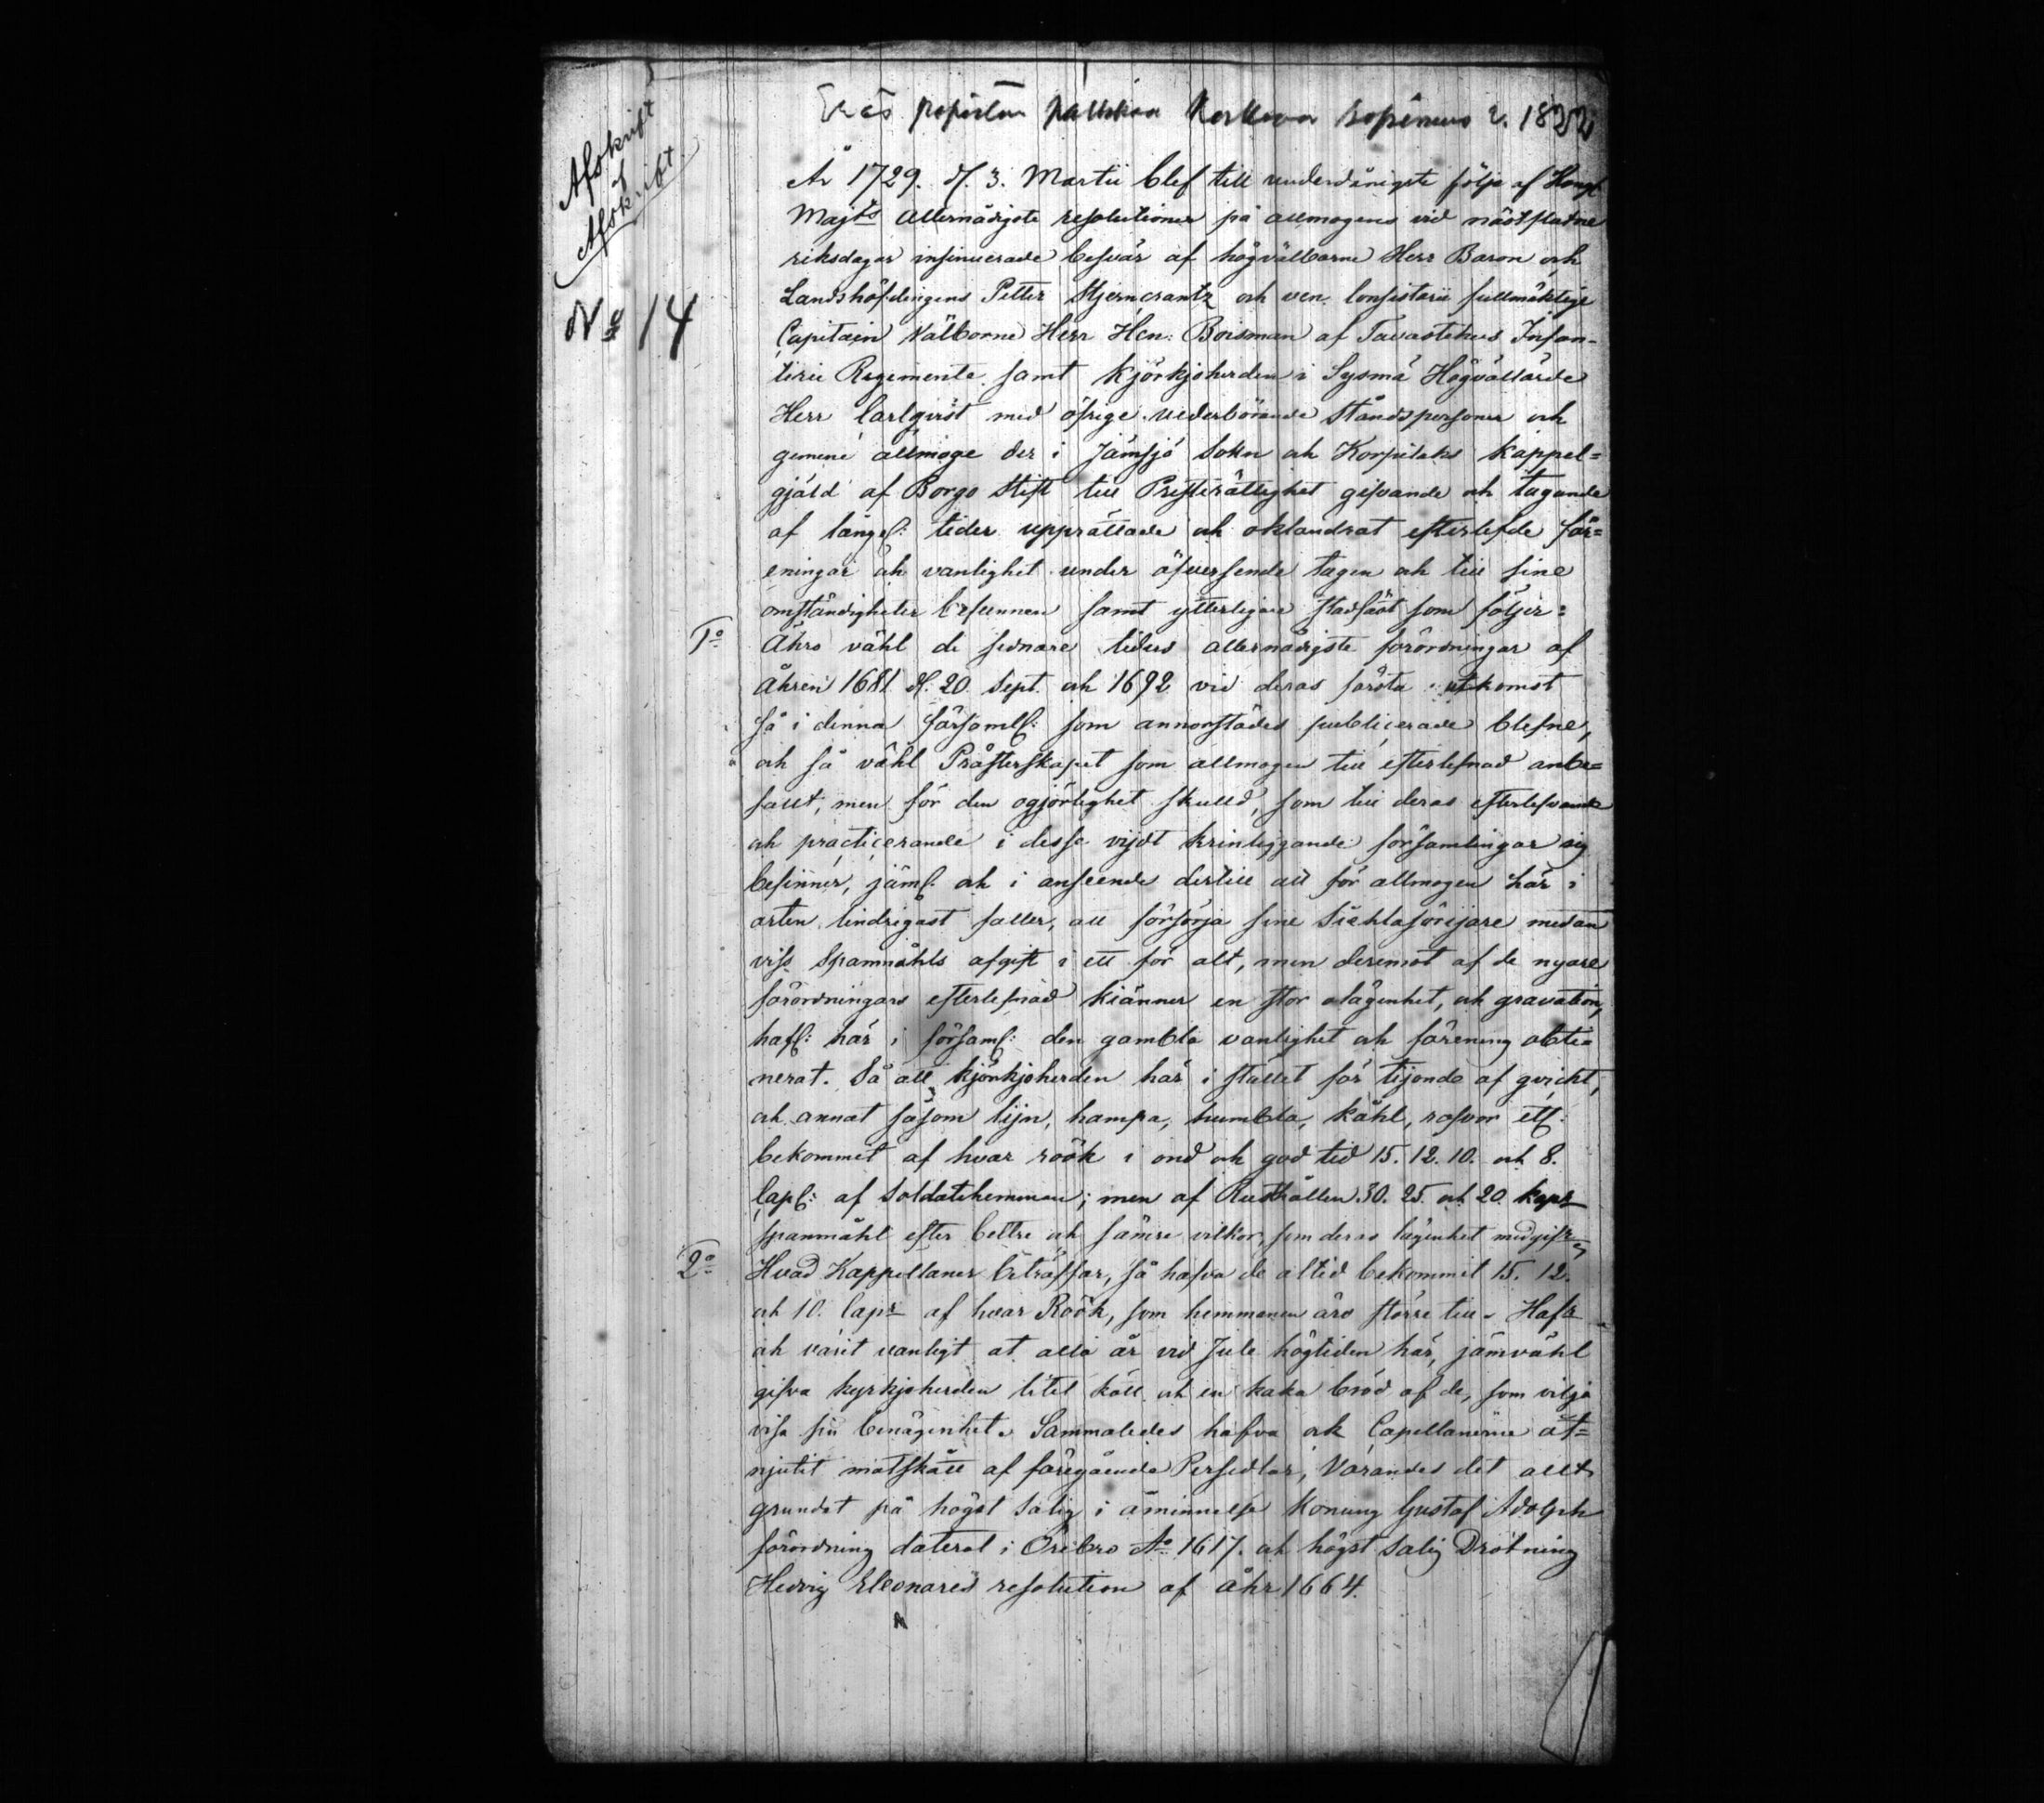 Afskrift
af
Afskrift.
No 14
Eräs papiston palkkaa koskeva sopimus v. 1822
År 1729. d. 3. Martii blef till underdånigste följe af Kongl.
Majts allernådigste resolutioner på allmogens vid näst slutne
riksdagar insinuerade besvär af högvälborne Herr Baron och
Landshöfdingens Petter Stjerncrantz och ven. Consistorii fullmäktige
Capitain Välborne Herr Hen: Boisman af Tavastehus Infan-
terie Regimente samt kjörkjoherden i Sysmä Högvällärde
Herr Carlqvist med öfrige vederbörande Ståndspersoner och
gemene allmoge der i Jämsjö Sokn och Korpilaks kappel=
gjäld af Borgo Stift till Presträttighet gifvande och tagande
af längf: tider upprättade och oklandrat efterlefde för=
eningar och vanlighet under öfverseende tagen och till sine
omständigheter befunnen samt ytterligare stadfäst som följer:
1o Ähro vähl de sednare tiders allernådigste förordningar af
åhren 1681 d. 20 Sept. och 1692 vid deras första utkomst
så i denna församlf: som annorstädes publicerade blefne,
och så vähl Prästerskapet som allmogen till efterlefnad anbe=
fallt, men för den ogjörlighet skulld, som till deras efterlefvande
och practicerande i desse vijdt kringliggande församlingar sig
befinner, jämf. och i anseende dertill att för allmogen här i
orten lindrigast faller, att försörja sine Siählasörjare medan
viss Spannmåhls afgift i ett för alt, men deremot af de nyare
förordningars efterlefnad kiänner en stor olägenhet, och gravation,
haf: här i församf: den gambla vanlighet och förening obti-
nerat. Så att kjörkjoherden här i stället för tijonde af qvicht,
och annat såsom lijn, hampa, humbla, kåhl, rofvor etc.
bekommit af hvar röök i ond och god tid 15. 12. 10. och 8.
Capf: af Soldatehemman; men af Rusthållen 30. 25. och 20 kapr
spanmåhl efter bettre och sämre vilkor, som deras lägenhet medgifr
2o Hvad Kappellaner beträffar, så hafva de altid bekommit 15. 12.
och 10. Capr af hvar Röök, som hemmanen äro större till. Hafr
och varit vanligt at alla år vid Jule högtiden här, jämväl
gifva kyrkjoherden litet kött och en kaka bröd af de, som vilja
visa sin benägenhet. Sammaledes hafva och Capellanerne åt=
njutit matskatt af föregående Persedlar, Varandes det allt
grundat på högst Salig i åminnelse Konung Gustaf Adolph
förordning daterat i Örebro Ao 1617. och högst Salig Drotning
Hedvig Eleonares resolution af åhr 1664.